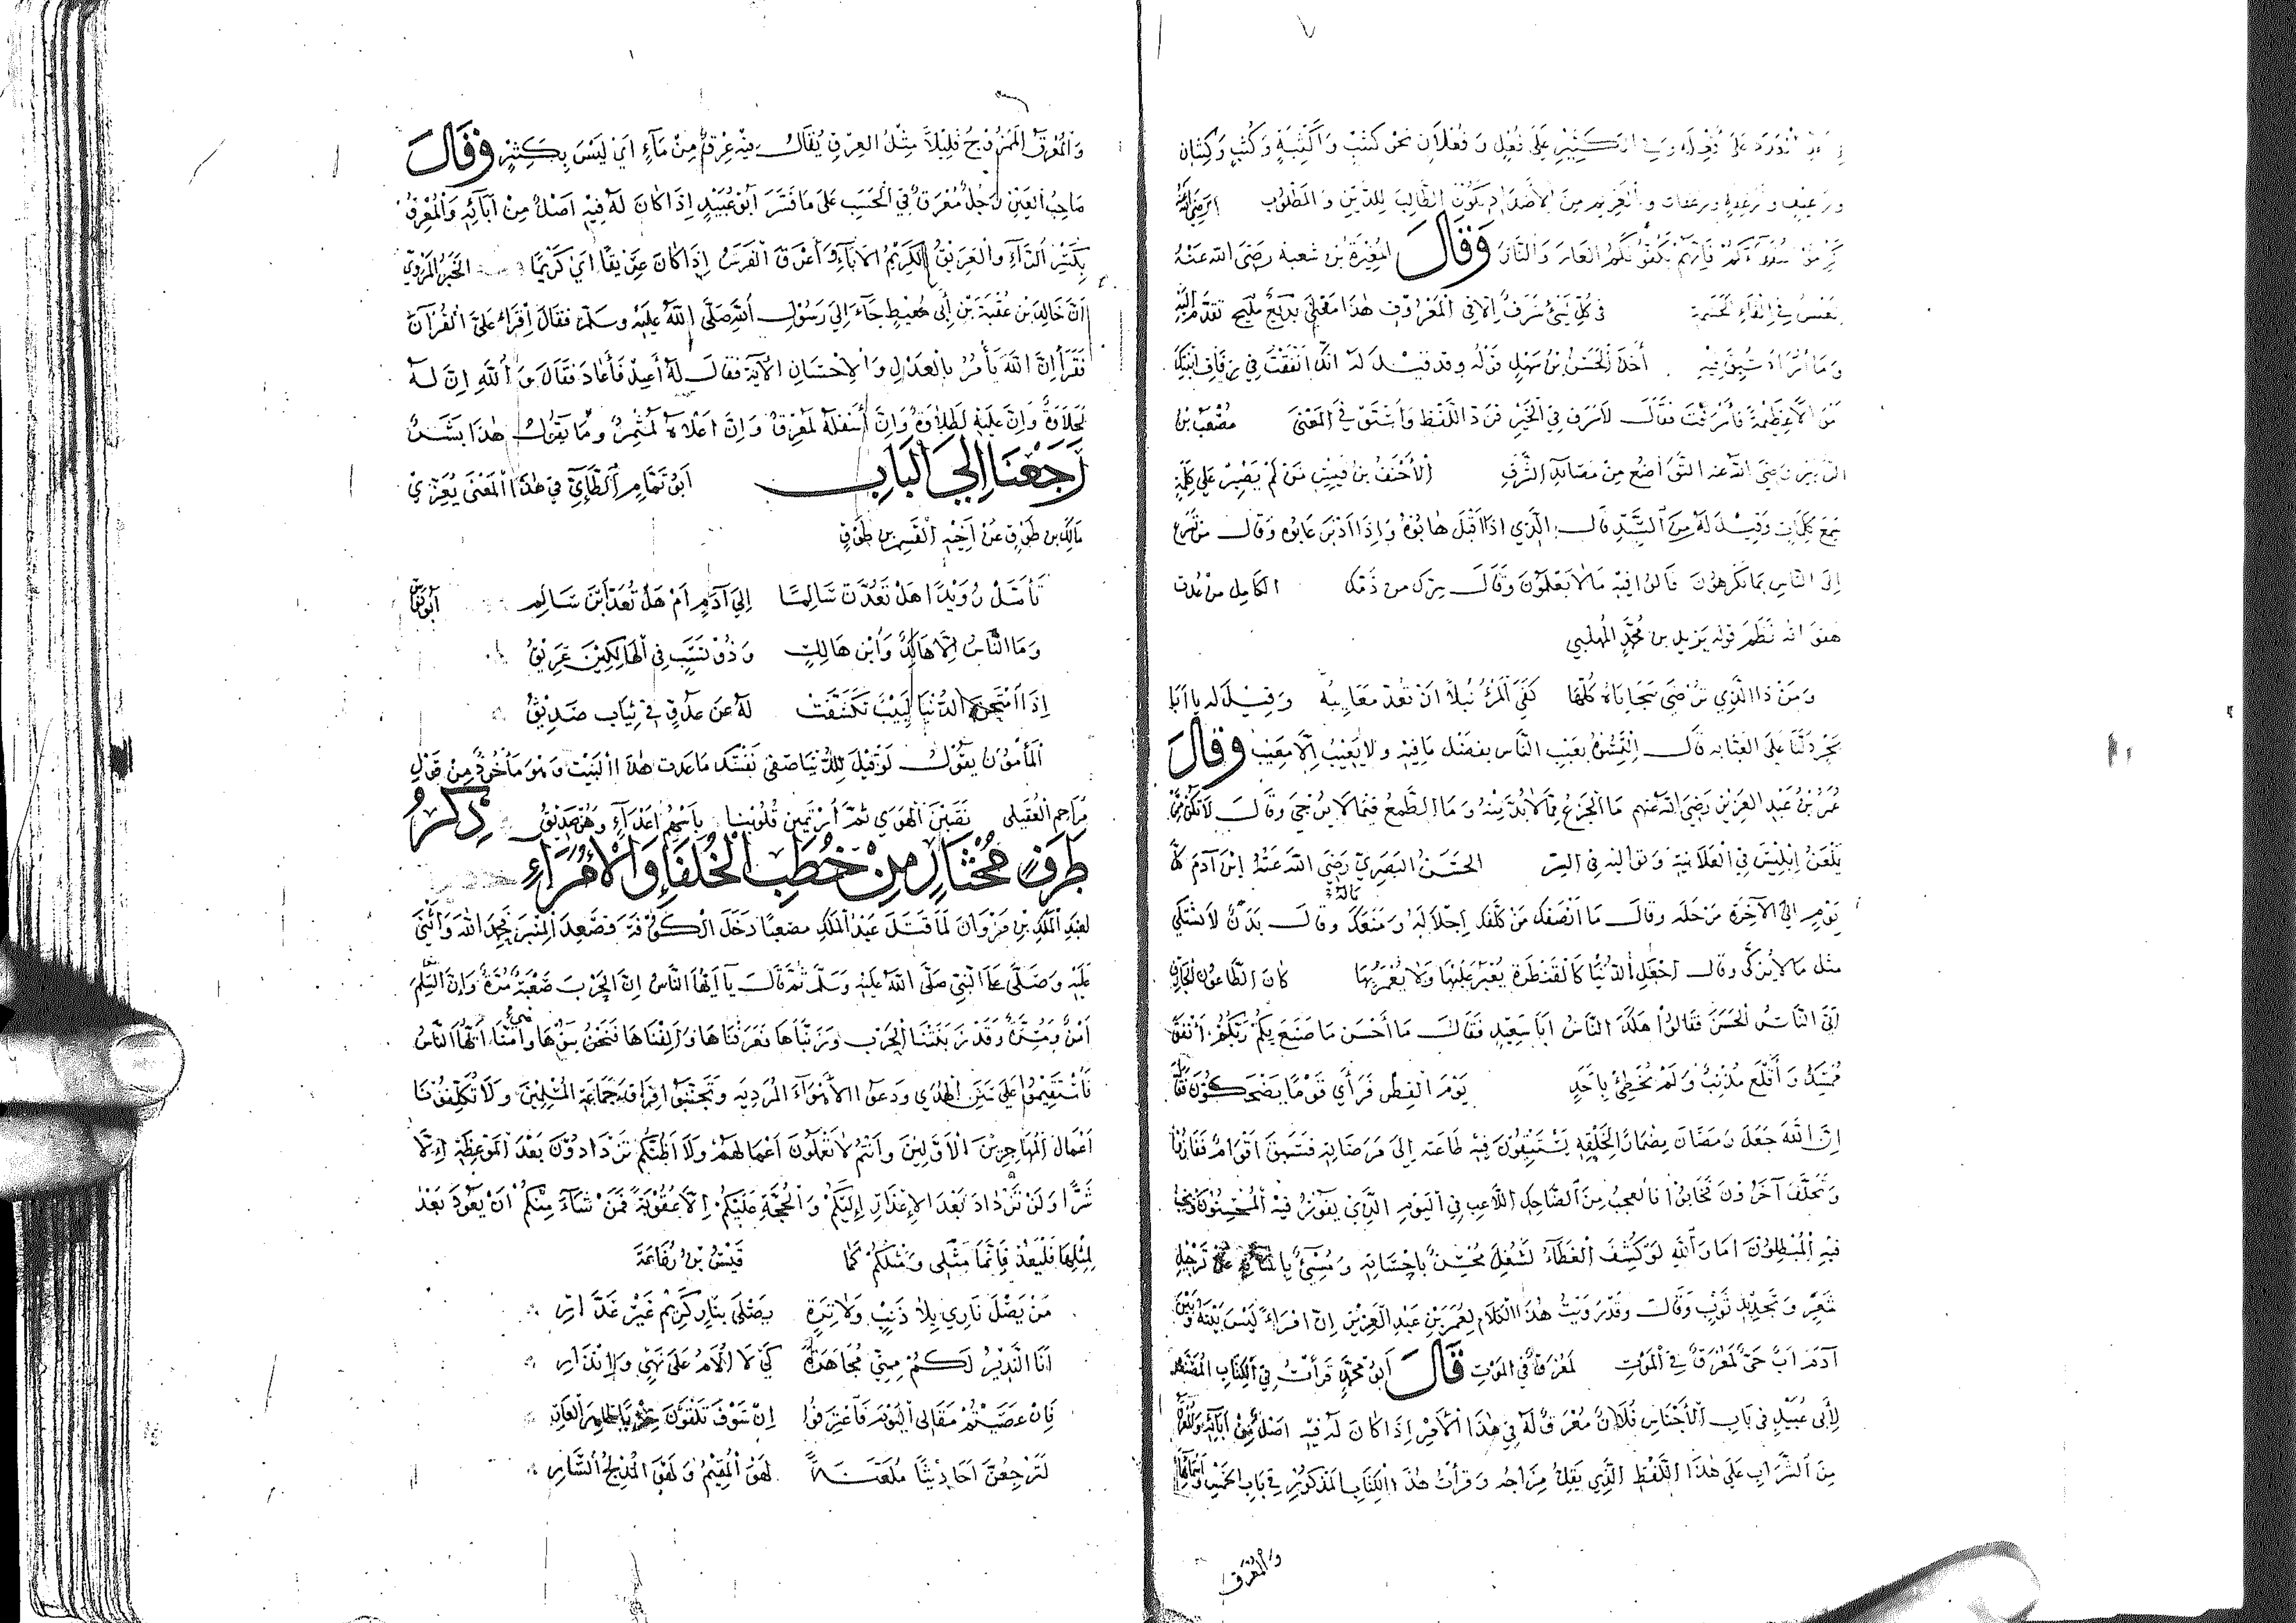 على فُعُل وفُعْلَانٍ نحوَ كَثيب وَأكْثِبَةٍ وَكُثُبٍ وَكُثْبَان
ورغيف وأرغفة ورغفان والغريم من الأضداد يكون الطَّالِبَ لِلدَّيْنِ وَالمَطْلُوب
سفهاءكم فإنهم يكفونكم العارَ وَالنَّارَ وَقَالَ المُغِيْرَةُ بن شعبة رَضِيَ الله عَنْهُ
في كُلِّ شَيْءٍ سَرَفٌ إِلَّا فِي المَعْرُوفِ هٰذَا مَعْنًى بَدِيْعٌ مَلِيْحٌ تَقَدَّمَ إِلَيْهِ
أَخَذَ الحَسَنُ بنُ سَهْلٍ قَوْلَهُ وقد قيلَ لَهُ انك أَنْفَقْتَ فِي زِفَافِ ابْنَتِكَ
فأَسْرَفْتَ فَقَالَ لَا سَرَفَ فِي الخَيْرِ فَرَدَّ اللَّفْظَ وَاسْتَوْفَى المَعْنَى مُصْعَبُ بنُ
الزبير رضي الله عنه التَّوَاضُعُ مِنْ مَصَائِدِ الشَّرَفِ الأَحْنَفُ بنُ قَيْسٍ مَنْ لَمْ يَصْبِرْ عَلَى كَلِمَةٍ
سَمِعَ كَلِمَاتٍ وَقِيْلَ لَهُ مَنِ السَّيِّدُ قَالَ الَّذِي إِذَا أَقْبَلَ هَابُوهُ وَإِذَا أَدْبَرَ عَابُوه وَقَالَ مَنْ تَسَرَّعَ
إِلَى النَّاسِ بِمَا يَكْرَهُونَ قَالُوا فِيْهِ مَا لَا يَعْلَمُوْنَ وَقَالَ الكَامِلُ مَنْ عُدَّت
هفواته نَظَمَ قوله يزيد بن مُحَمَّدٍ المُهَلَّبِي
وَمَنْ ذَا الَّذِي تُرْضَى سَجَايَاهُ كُلّهَا كَفَى المَرْءَ نُبْلًا أَنْ تُعَدَّ مَعَايِبُهْ وَقِيْلَ له يا أبا
بَحْر دُلَّنَا عَلَى العَيَّابِ قَالَ التَّمِسُوهُ يعيب النَّاس بفضل مَا فِيْهِ وَلَا يَعِيْبُ إِلَّا مَعِيْب وَقَالَ
عُمَرُ بنُ عَبْدِ العَزِيْزِ رَضِيَ اللهُ عَنْهم مَا الجَزَعُ مِمَّا لَا بُدَّ مِنْهُ وَمَا الطَّمَعُ فِيْمَا لَا يُرْجَى وَقَالَ لَا تَكُنْ مِمَّنْ
يَلْعَنُ إِبْلِيْسَ فِي العَلَانِيَةِ وَتوَالِيهِ فِي السِّرّ الحَسَنُ البَصْرِيُّ رَضِيَ اللهُ عَنْهُ ابْنَ آدَمَ
يَوْمٍ إِلَى الآخِرَةِ مَرْحَلَة وَقَالَ مَا أَنْصَفَكَ مَنْ كَلَّفَكَ إِجْلَالَهُ وَمَنَعَكَ مَالَهُ وَقَالَ بَدَنٌ لَا يَشْتَكِي
مثل مَالٍ لَا يُزَكَّى وَقَالَ اجْعَلِ الدُّنْيَا كَالقَنْطَرَةِ يُعْبَرُ عَلَيْهَا وَلَا يُعَمَّرُهَا كَانَ الطَّاعُونُ الجَارِف
أَتَى النَّاسُ الحَسَنَ فَقَالُوا هَلَكَ النَّاسُ أَبَا سَعِيْدٍ فَقَالَ مَا أَحْسَنَ مَا صَنَعَ بِكُمْ رَبُّكُمْ أَنْفَقَ
مُمْسِكٌ وَأَقْلَعَ مُذْنِبٌ وَلَمْ يُخْطِئْ بِأَحَدٍ يَوْمَ الفِطْرِ فَرَأَى قَوْمًا يَضْحَكُوْنَ فَقَالَ
إِنَّ اللهَ جَعَلَ رَمَضَانَ مِضْمَارًا لِخَلْقِهِ يَسْتَبِقُونَ فِيْهِ طَاعَتهِ إِلَى مَرْضَاتِهِ فَسَبَقَ أَقْوَامٌ فَفَازُوْا
وَتَخَلَّفَ آخَرُوْنَ فَخَابُوْا فَالعَجَبُ مِنَ الضَّاحِكِ اللَّاعِبِ فِي اليَوْمِ الَّذِي يَفُوْزُ فِيْهِ المُحْسِنُوْنَ ويخيب
فيهِ المُبْطِلُوْنَ أَمَا وَاللهِ لَوْ كُشِفَ الغِطَاءُ لَشُغِلَ مُحْسِنٌ بِإِحْسَانِهِ وَمُسِيءٌ عَنْ تَرْجِيْلِ
شَعَرٍ وَتَجْدِيْدِ ثَوْبٍ وَقَالَ وَقَدْ رُوِيَتْ هٰذَا الكَلَامُ لِعُمَرَ بْنِ عَبْدِ العَزِيْزِ إِنَّ امْرَءًا لَيْسَ بَيْنَهُ وَبَيْنَ
آدَمَ أَبٌ حَيٌّ لَمُعْرَقٌ فِي المَوْتِ لَمُعْرَقٌ فِي المَوْتِ قَالَ أَبُو مُحَمَّدٍ قَرَأْتُ فِي الكِتَابِ المُصَنَّفِ
لِأَبِي عُبَيْدٍ فِي بَابِ الأَجْنَاسِ فُلَانٌ مُعْرَقٌ لَهُ فِي هٰذَا الأَمْرِ إِذَا كَانَ لَهُ فِيْهِ أَصْلٌ مِنْ آبَائِهِ وَالمُعْرَقُ
مِنَ الشَّرَابِ عَلَى هٰذَا اللَّفْظِ الَّذِي يَقِلُّ مِزَاجُه وَقَرَأْتُ هٰذَا الكِتَابِ المَذْكُوْرِ فِي بَابِ الخَمْرِ وَأَسْمَائِهَا
والمُعْرَق
وَالمُعْرَقُ المَمْزُوْجُ قَلِيْلًا مِثْلُ العِرْقِ يُقَالُ فِيْهِ عِرْقٌ مِنْ مَاءٍ أَيْ لَيْسَ بِكَثِيْرٍ وَقَالَ
صَاحِبُ العَيْنِ رَجُلٌ مُعْرَقٌ فِي الحَسَبِ عَلَى مَا فَسَّرَ أَبُو عُبَيْدٍ إِذَا كَانَ لَهُ فِيْهِ أَصْلٌ مِنْ آبَائِهِ وَالمُعْرِقُ
بِكَسْرِ الرَّاءِ وَالعَرِيْقُ الكَرِيْمُ الآبَاءِ وَأَعْرَقَ الفَرَسُ إِذَا كَانَ عَرِيْقًا أَيْ كَرِيْمًا الخَبَرُ المَرْوِيُّ
أَنَّ خَالِدَ بْنَ عُقْبَةَ بْنِ أَبِي مُعَيْطٍ جَاءَ إِلَى رَسُوْلِ اللهِ صَلَّى اللهُ عَلَيْهِ وَسَلَّمَ فَقَالَ اقْرَأْ عَلَيَّ القُرْآنَ
فَقَرَأَ إِنَّ اللهَ يَأْمُرُ بِالعَدْلِ وَالإِحْسَانِ الآيَة فَقَالَ لَهُ أَعِدْ فَأَعَادَ فَقَالَ وَاللهِ إِنَّ لَهُ
لَحَلَاوَةً وَإِنَّ عَلَيْهِ لَطَلَاوَةً وَإِنَّ أَسْفَلَهُ لَمُعْرِقٌ وَإِنَّ أَعْلَاهُ لَمُثْمِرٌ وَمَا يَقُوْلُ هٰذَا بَشَرٌ
رَجَعْنَا إِلَى البَابِ أَبُو تَمَّامٍ الطَّائِيُّ فِي هٰذَا المَعْنَى يُعَزِّي
مَالِكَ بن طَوْقٍ عَنْ أَخِيْهِ القَاسِمِ بن طَوْقٍ
تَأَمَّلْ رُوَيْدًا هَلْ تَعُدَّنَّ سَالِمًا إِلَى آدَمٍ أَمْ هَلْ تُعَدُّ ابْنَ سَالِمِ أَبُو نُوَاسٍ
وَمَا النَّاسُ إِلَّا هَالِكٌ وَابْنُ هَالِكٍ وَذُوْ نَسَبٍ فِي الهَالِكِيْنَ عَرِيْقُ
إِذَا امْتَحَنَ الدُّنْيَا لَبِيْبٌ تَكَشَّفَتْ لَهُ عَنْ عَدُوٍّ فِي ثِيَابِ صَدِيْقُ
المَأْمُوْنُ يَقُوْلُ لَوْ قِيْلَ لِلدُّنْيَا صِفِي نَفْسَكِ مَا عَدَت هٰذَا البَيْت وَهُوَ مَأْخُوذٌ مِنْ قَوْلِ
مُزَاحِمِ العُقَيْلِي نَصَبْنَ الهَوَى ثُمَّ ارْتَمَيْنَ قُلُوْبَنَا بِأَسْهُمِ أَعْدَاءٍ وَهُنَّ صَدِيْقُ ذِكْرُ
طَرَفٍ مُخْتَارٍ مِنْ خُطَبِ الخُلَفَاءِ وَالأُمَرَاءِ
لِعَبْدِ المَلِكِ بْنِ مَرْوَانَ لَمَّا قَتَلَ عَبْدُ المَلِكِ مصعبًا دَخَلَ الكُوْفَةَ فَصَعِدَ المِنْبَرَ فَحَمِدَ اللهَ وَأَثْنَى
عَلَيْهِ وَصَلَّى عَلَى النَّبِيِّ صَلَّى اللهُ عَلَيْهِ وَسَلَّمَ ثُمَّ قَالَ يَا أَيُّهَا النَّاسُ إِنَّ الحَرْبَ صَعْبَةٌ مُرَّةٌ وَإِنَّ السِّلْمَ
أَمْنٌ وَمَسَرَّةٌ وَقَدْ زَبَنَتْنَا الحَرْبُ وَزَبَنَّاهَا فَعَرَفْنَاهَا وَأَلِفْنَاهَا فَنَحْنُ بَنُوْهَا وَهِيَ أُمُّنَا أَيُّهَا النَّاسُ
فَاسْتَقِيْمُوا عَلَى سُنَنِ الهُدَى وَدَعُوا الأَهْوَاءَ المُرْدِيَةَ وَتَجَنَّبُوا فِرَاقَ جَمَاعَةِ المُسْلِمِيْنَ وَلَا تُكَلِّفُوْنَا
أَعْمَالَ المُهَاجِرِيْنَ الأَوَّلِيْنَ وَأَنْتُمْ لَا تَعْمَلُوْنَ أَعْمَالَهُمْ وَلَا أَظُنُّكُمْ تَزْدَادُوْنَ بَعْدَ المَوْعِظَةِ إِلَّا
شَرًّا وَلَنْ نَزْدَادَ بَعْدَ الإِعْذَارِ إِلَيْكُمْ وَالحُجَّةِ عَلَيْكُمْ إِلَّا عُقُوْبَةً فَمَنْ شَاءَ مِنْكُمْ أَنْ يَعُوْدَ بَعْدُ
لِمِثْلِهَا فَلْيَعُدْ فَإِنَّمَا مَثَلِي وَمَثَلُكُمْ كَمَا قَيْسُ بْنُ رُفَاعَةَ
مَنْ يَصْلَ نَارِي بِلَا ذَنْبٍ وَلَا تِرَةٍ يَصْلَى بِنَارِ كَرِيْمٍ غَيْرِ غَدَّارِ
أَنَا النَّذِيْرُ لَكُمْ مِنِّي مُجَاهَدَةً كَي لَا أُلَامَ عَلَى نَهْيٍ وَإِنْذَارِ
فَإِنْ عَصَيْتُمْ مَقَالِي اليَوْمَ فَاعْتَرِفُوا أَنْ سَوْفَ تَلْقَوْنَ خِزْيًا ظَاهِرَ العَارِ
لَتَرْجِعُنَّ أَحَادِيْثًا مُلَعَّنَةً لَهْوَ المُقِيْمِ وَلَهْوَ المُدْلِجِ السَّارِي